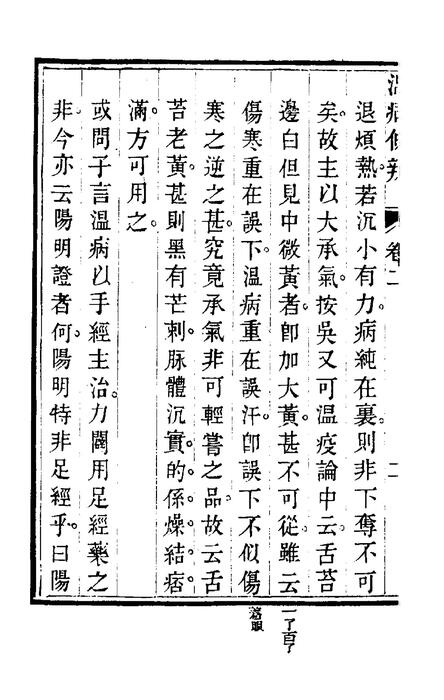 溫病條辨 卷二 二
退煩熱。若沉小有力。病純在裏。則非下奪不可
矣。故主以大承氣。按吳又可溫疫論中云。舌苔
邊白但見中微黃者。卽加大黃。甚不可從。雖云
傷寒重在誤下。溫病重在誤汗。卽誤下不似傷
寒之逆之甚。究竟承氣非可輕嘗之品。故云舌
苔老黃。甚則黑有芒刺。脉體沉實。的係燥結痞
滿。方可用之。
或問子言溫病以手經主治。力闢用足經藥之
非。今亦云陽明證者何。陽明特非足經乎。曰陽
一了百了